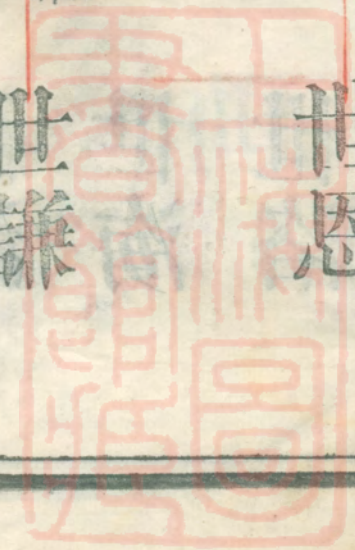 世恩
世謙
上海圖
書館藏